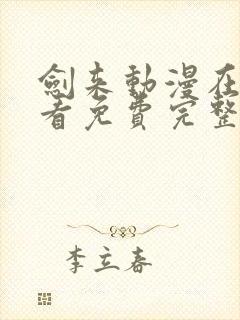 劍来動漫在
看免費完整
李立春